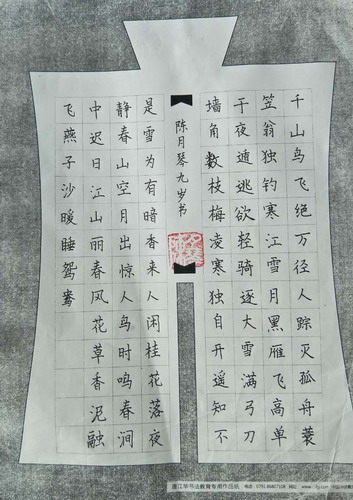 千山鸟飞绝万径人踪灭孤舟蓑
笠翁独钓寒江雪月黑雁飞高单
于夜遁逃欲轻骑逐大雪满弓刀
墙角数枝梅凌寒独自开遥知不
陈月琴九岁书
是雪为有暗香来人闲桂花落夜
静春山空月出惊人鸟时鸣春涧
中迟日江山丽春风花草香泥融
飞燕子沙暖睡鸳鸯
书法教育专用作品纸 电话